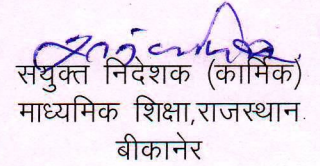 संयुक्त निदेशक (कार्मिक)
माध्यमिक शिक्षा,राजस्थान.
बीकानेर